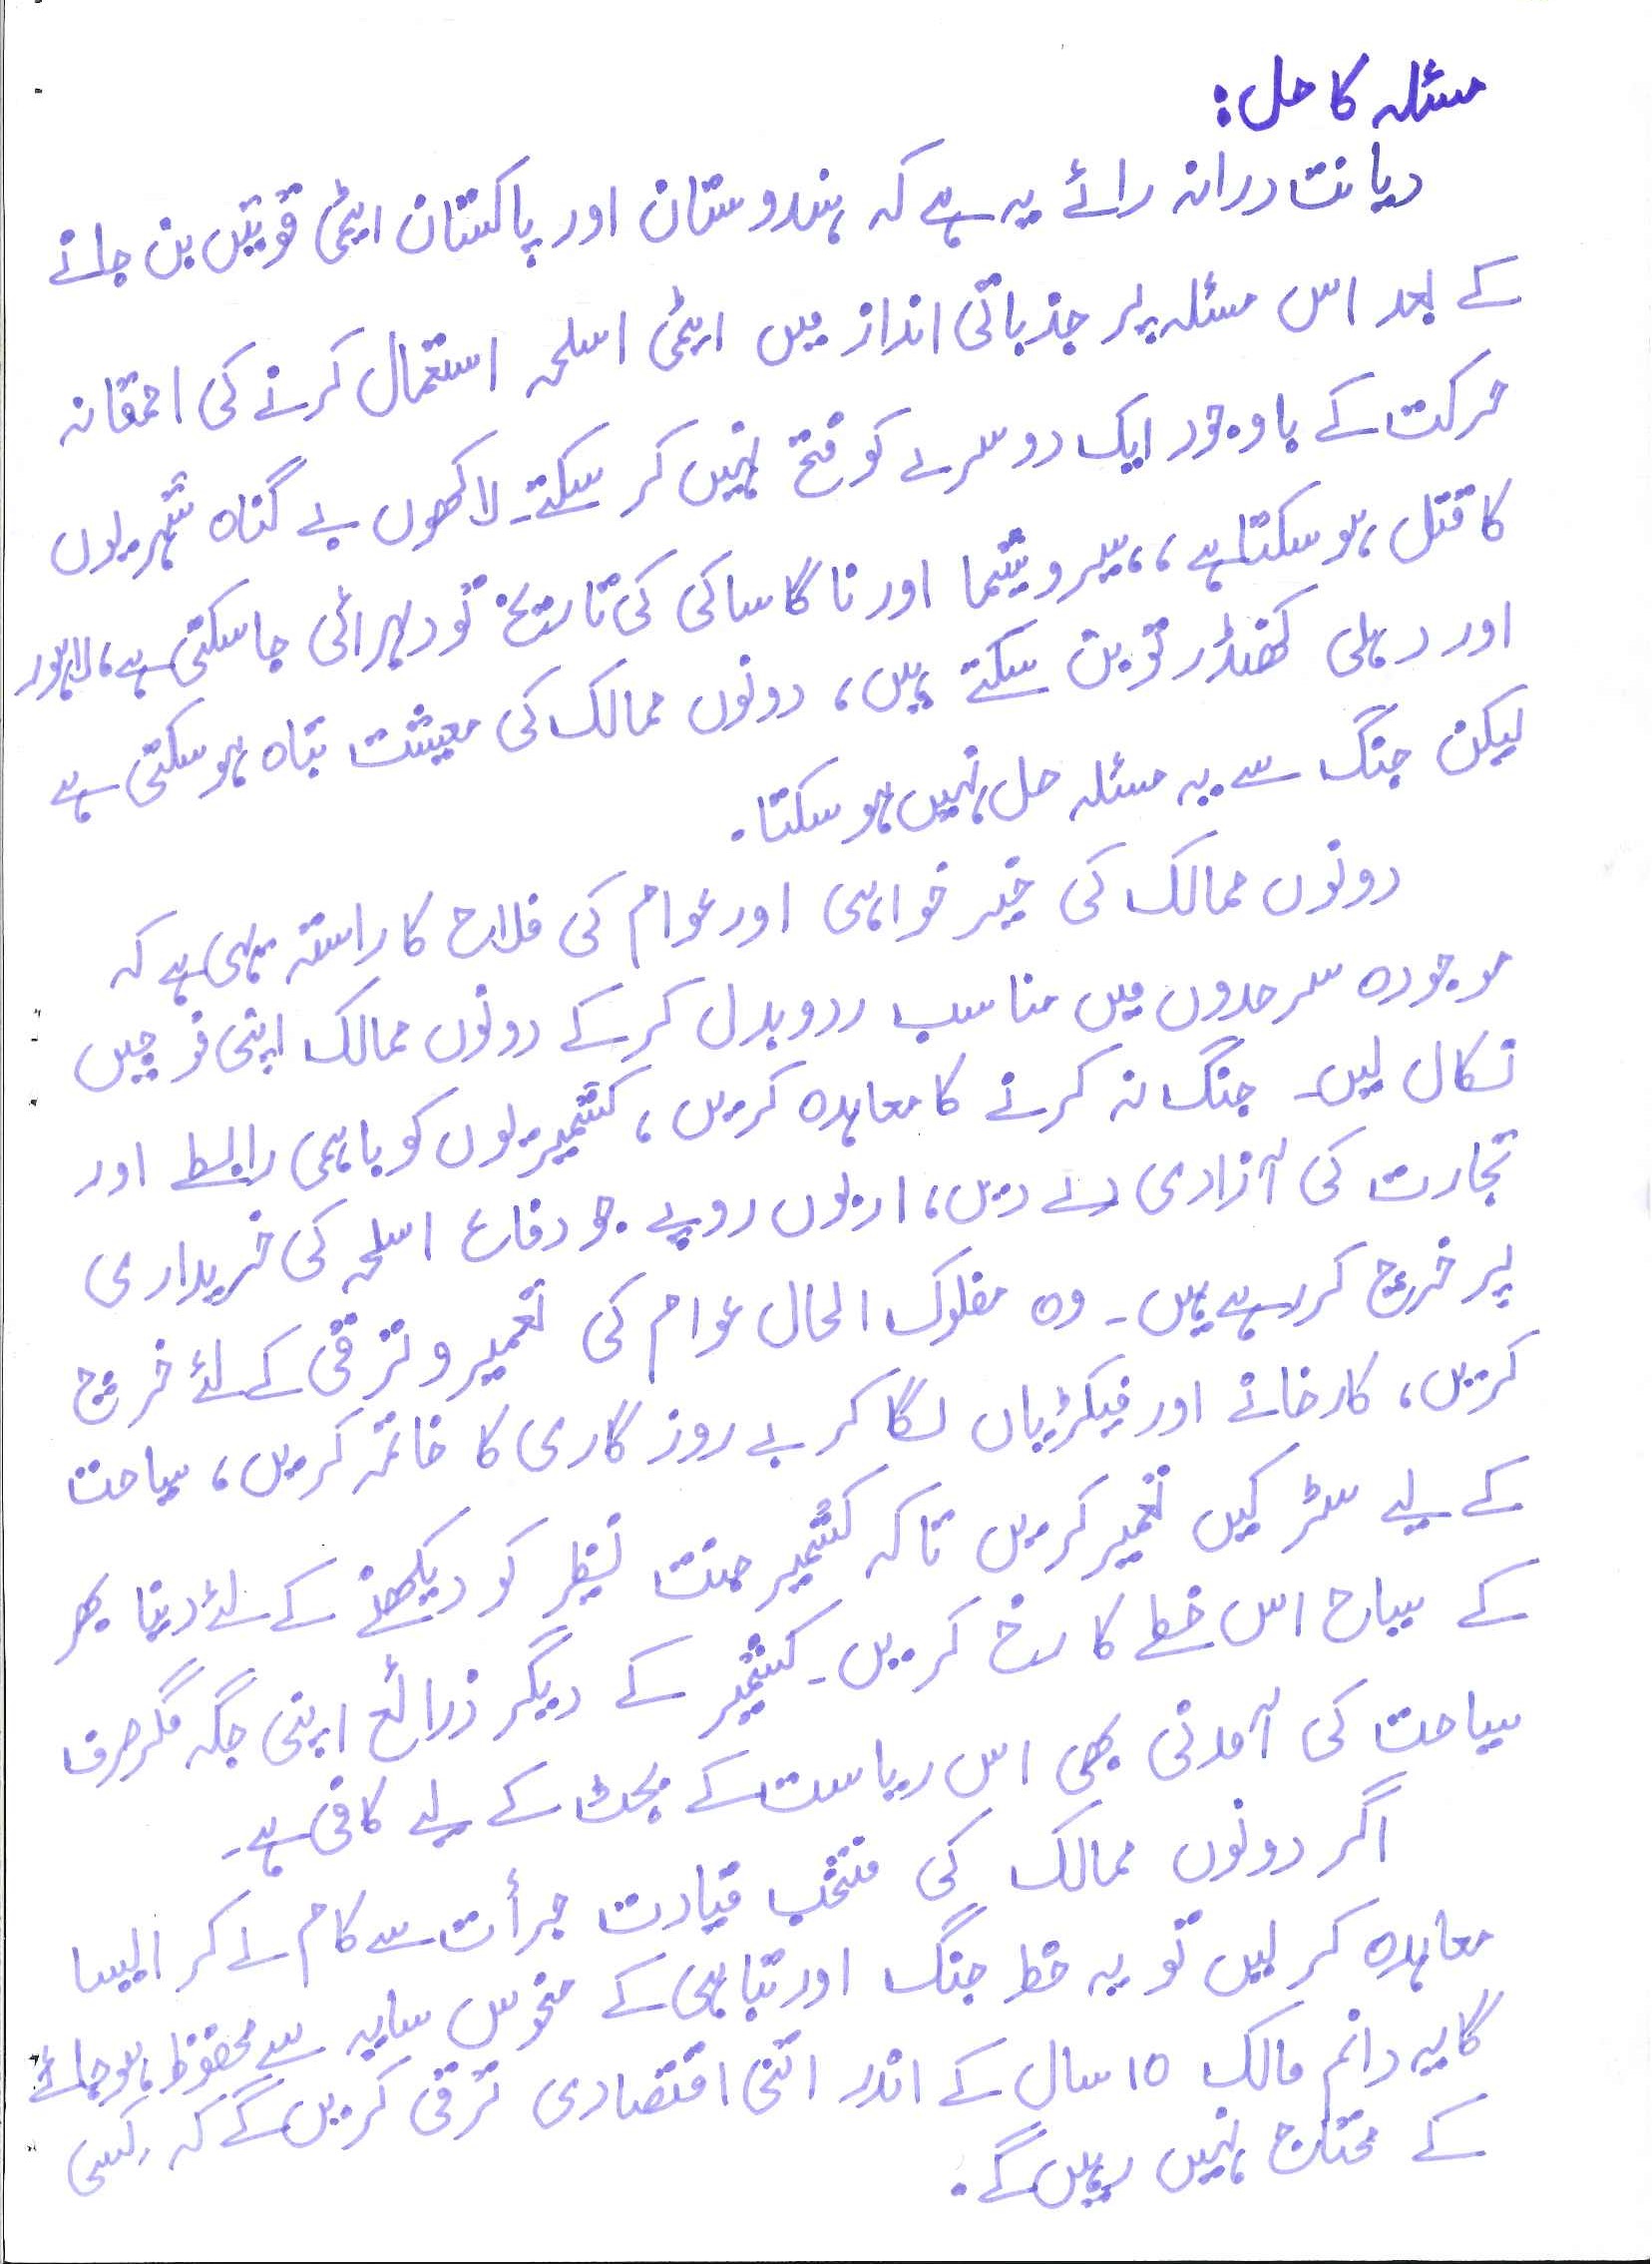 مسئلہ کا حل:
دیانت درانہ رائے یہ ہے کہ ہندوستان اور پاکستان ایٹمی قوتیں بن جانے
کے بعد اس مسئلہ پر جذباتی انداز میں ایٹمی اسلحہ استعمال کرنے کی احمقانہ
حرکت کے باوجود ایک دوسرے کو فتح نہیں کر سکتے۔ لاکھوں بے گناہ شہریوں
کا قتل ہو سکتا ہے،، ہیروشیما اور ناگاساکی کی تاریخ تو دہرائی جا سکتی ہے، لاہور
اور دہلی کھنڈر تو بن سکتے ہیں، دونوں ممالک کی معیشت تباہ ہو سکتی ہے
لیکن جنگ سے یہ مسئلہ حل نہیں ہو سکتا.
دونوں ممالک کی خیر خواہی اور عوام کی فلاح کا راستہ یہی ہے کہ
موجودہ سرحدوں میں مناسب ردوبدل کر کے دونوں ممالک اپنی فوجیں
نکال لیں۔ جنگ نہ کرنے کا معاہدہ کریں، کشمیریوں کو باہمی رابطے اور
تجارت کی آزادی دے دیں، اربوں روپے جو دفاع اسلحہ کی خریداری
پر خرچ کر رہے ہیں۔ وہ مفلوک الحال عوام کی تعمیر و ترقی کے لئے خرچ
کریں، کارخانے اور فیکڑیاں لگا کر بے روزگاری کا خاتمہ کریں، سیاحت
کے لیے سڑکیں تعمیر کریں تاکہ کشمیر جنت نظیر کو دیکھنے کے لئے دنیا بھر
کے سیاح اس خطے کا رخ کریں۔ کشمیر کے دیگر ذرائع اپنی جگہ مگر صرف
سیاحت کی آمدنی بھی اس ریاست کے بجٹ کے لیے کافی ہے۔
اگر دونوں ممالک کی منتخب قیادت جرأت سے کام لے کر ایسا
معاہدہ کر لیں تو یہ خطہ جنگ اور تباہی کے منحوس سایہ سے محفوظ ہو جائے
گا یہ دانم مالک ۱۵ سال کے اندر اتنی اقتصادی ترقی کریں گے کہ کسی
کے محتاج نہیں رہیں گے.